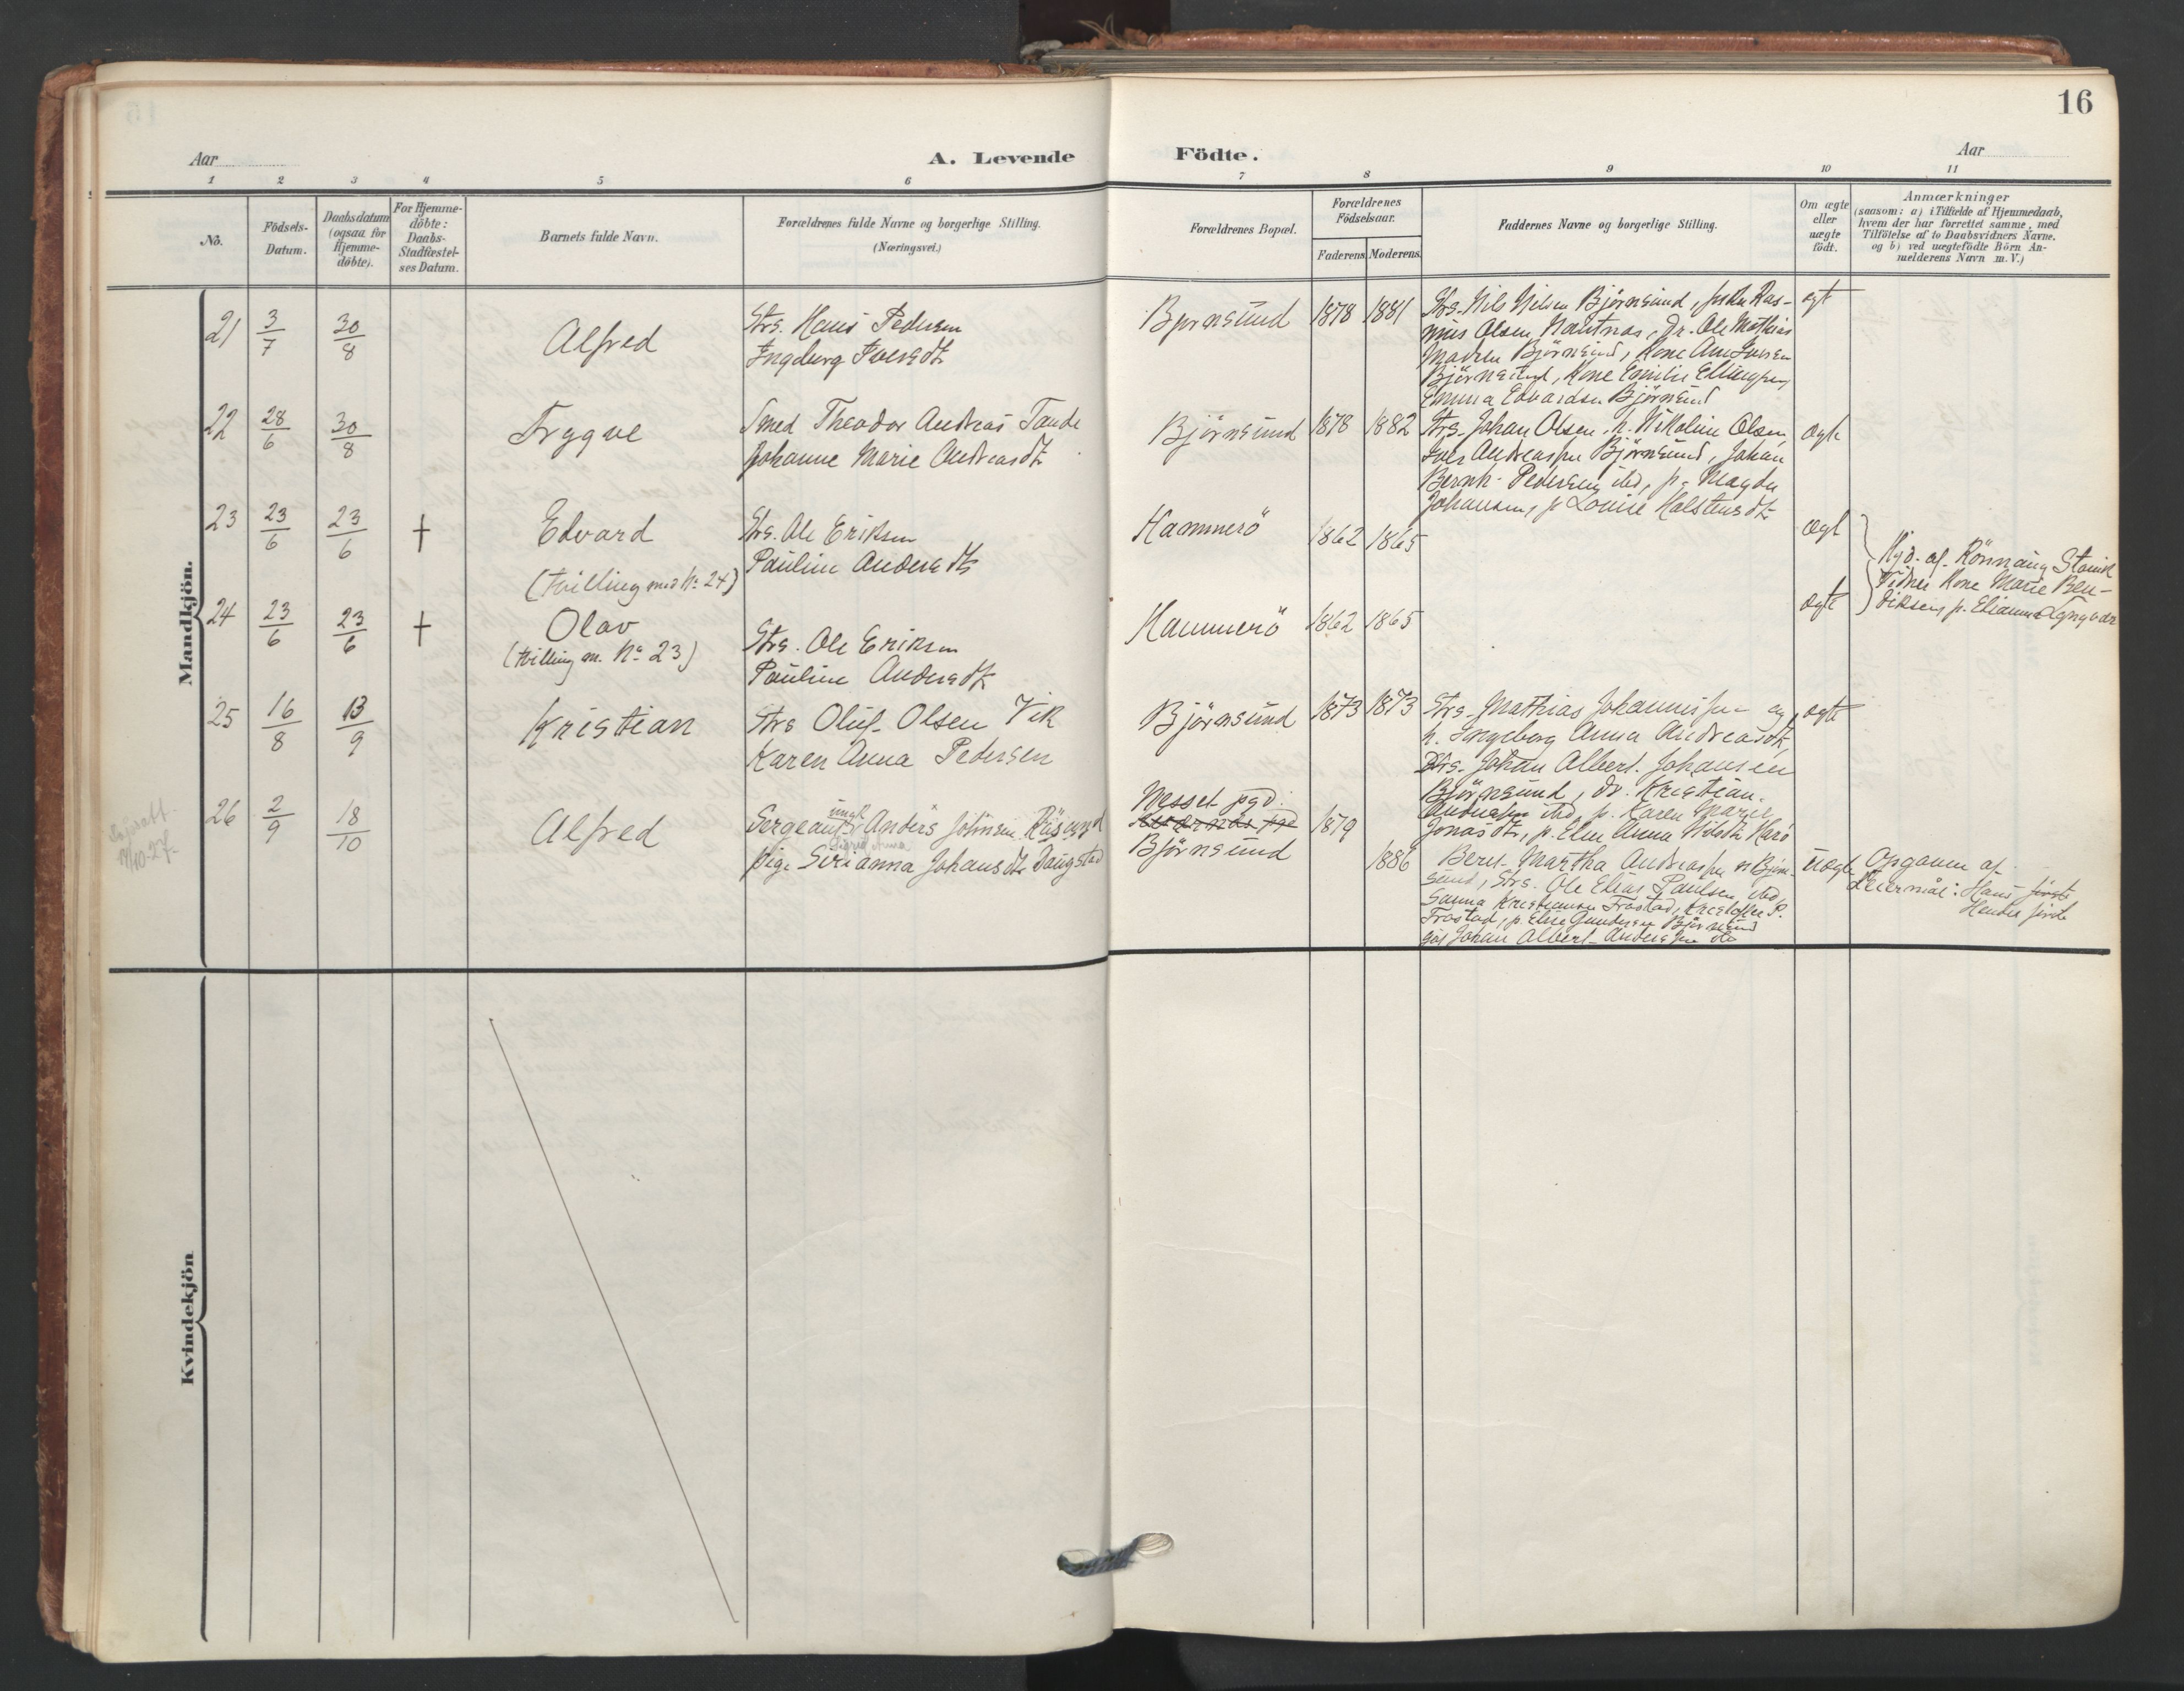 16
Aar
A. Levende
Födte.
Aar
1 2 3 4 5 6 7 8 9 10 11
No.
Födsels-
Datum.
Daabsdatum
(ogsaa for
Hjemme-
döbte).
For Hjemme-
döbte:
Daabs-
Stadfæstel-
ses Datum.
Barnets fulde Navn.
Forældrenes fulde Navne og borgerlige Stilling.
(Næringsvei.)
Forældrenes Bopæl.
Forældrenes
Födselsaar.
Faderens
Moderens.
Faddernes Navne og borgerlige Stilling.
Om ægte
eller
uægte
födt.
Anmærkninger
(saasom: a) i Tilfælde af Hjemmedaab,
hvem der har forrettet samme, med
Tilföielse af to Daabsvidners Navne,
og b) ved uægtefödte Börn An-
melderens Navn m. V.)
Mandkjön.
21 3/7 30/8 Alfred
Strs. Hans Pedersen
Ingeborg Iversdt
Bjørnsund 1878 1881
Strs. Nils Nilsen Björnsund, Ras-
mus Olsen Nautnes, Dr. Ole Mathias
Madsen Björnsund, Kone Ane Iversen
Björnsund, Kone Emilie Ellingsen,
Emma Edvardsen Björnsund
ægt
22 28/6 30/8 Trygve
Smed Theodor Andreas Tande
Johanne Marie Andreasdt
Björnsund 1878 1882
Strs. Johan Olsen, h. Nikoline Olsen,
Iver Andreassen Björnsund, Johan
Bernh. Pedersen ibd, p. Magda
Johansen, p Louise Halstensdt
ægte
23 23/6 23/6 † Edvard
(tvilling med No 24)
Strs. Ole Eriksen
Pauline Andersdt
Hammerö 1862 1865
ægt
Hjd. af Rönnaug Stavik
Vidner Kone Marie Ben-
diksen, p. Elianna Lyngvær
24 23/6 23/6 † Olav
(tvilling m. No 23)
Strs. Ole Eriksen
Pauline Andersdt
Hammerö 1862 1865
ægte
25 16/8 13/9 Kristian
Strs Oluf Olsen Vik
Karen Anna Pedersen
Björnsund 1873 1873
Strs. Mathias Johannissen og
h. Ingeborg Anna Andreasdt,
Strs. Johan Albert Johansen
Björnsund, dr. Kristian
Andreasen ibd, p. Karen Marie
Jonasdt, p. Eline Anna Nilsdt Harö
ægte
26 2/9 18/10 Alfred
14/10-27-
ungk
Sergeant Anders Johnsen Riisund
Sigrid Anna
pige Serianna Johansdt Daugstad
Nesset pgd.
Björnsund
1879
1886
Beret Martha Andreassen Björn-
sund, Strs. Ole Elias Paulsen ibd,
Sanna Kristiansen Frostad, Kristoffer P.
Frostad, p. Elise Gundersen Björnsund
Johan Albert Anderssen ibd
uægte
Opgaven af
Leiermål: Hans förste
Hendes förste
Kvindekjön